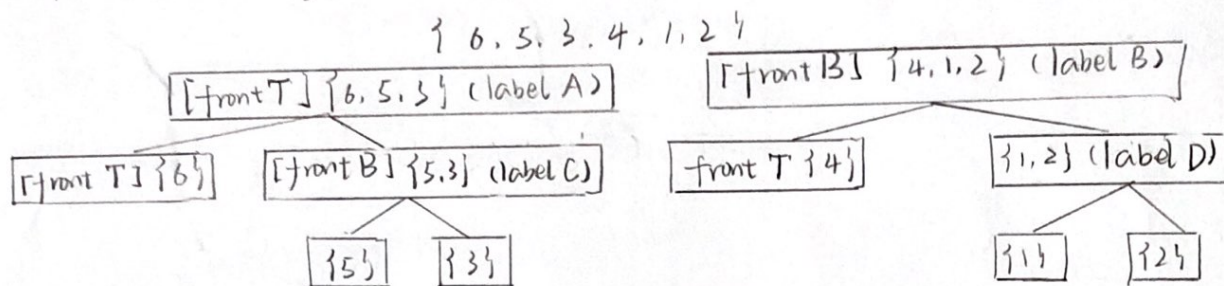 { 6, 5, 3, 4, 1, 2 }
[front T] {6, 5, 3} (label A) [front B] {4, 1, 2} (label B)
[front T] {6} [front B] {5,3} (label C) front T {4} {1, 2} (label D)
{5} {3} {1} {2}